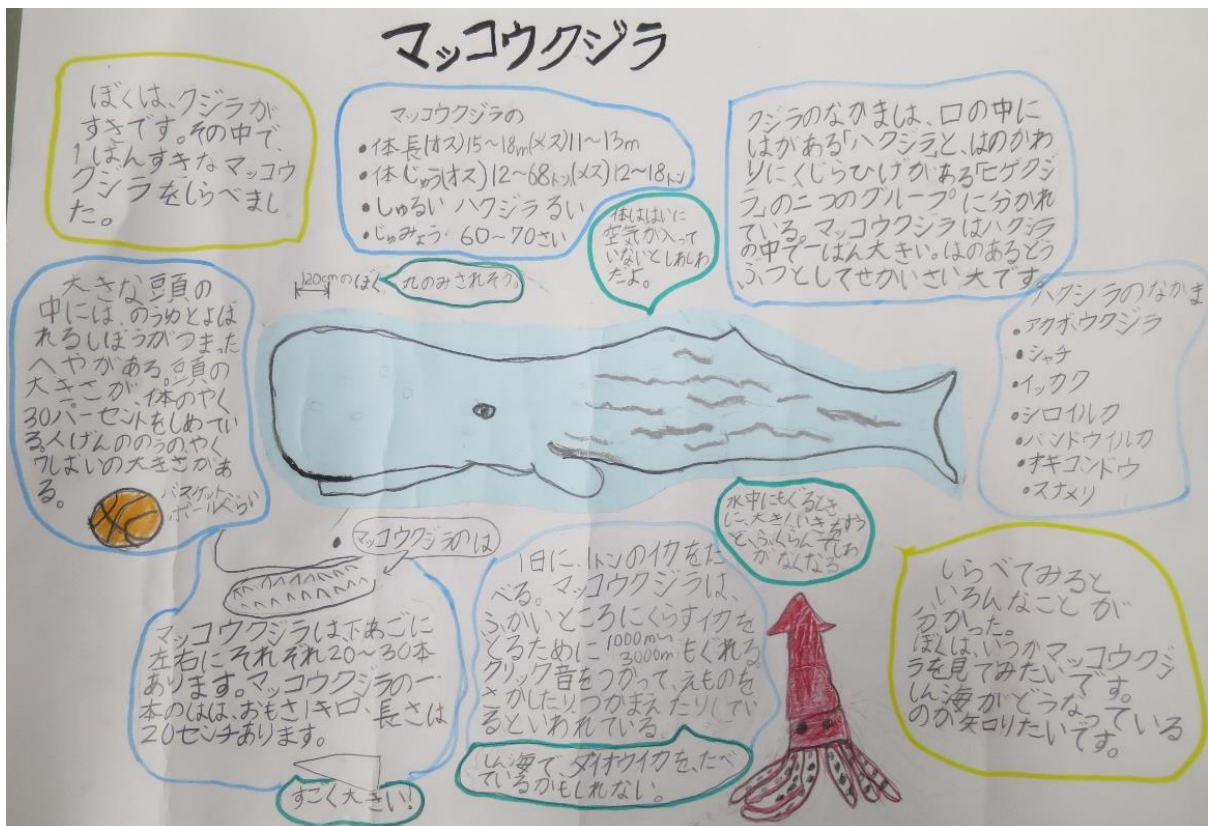 マッコウクジラ
ぼくは、クジラが
すきです。その中で、
1ばんすきなマッコウ
クジラをしらべまし
た。
マッコウクジラの
•体長(オス)15~18m(メス)11~13m
•体じゅう(オス)12~68トン(メス)12~18トン
•しゅるい ハクジラるい
•じゅみょう 60~70さい
クジラのなかまは、口の中に
はがある「ハクジラ」と、はのかわ
りにくじらひげがある「ヒゲクジ
ラ」の二つのグループに分かれ
ている。マッコウクジラはハクジラ
の中で一ばん大きい。はのあるどう
ぶつとしてせかいさい大です。
体ははいに
空気が入って
いないとしわしわ
だよ。
120cmのぼく
丸のみされそう。
大きな頭の
中には、のうゆとよば
れるしぼうがつまった
へやがある。頭の
大きさが、体のやく
30パーセントをしめてい
る。人げんののうの、やく
ばいの大きさがあ
る。
バスケット
ボールぐらい
ハクジラのなかま
•アカボウクジラ
•シャチ
•イッカク
•シロイルカ
•バンドウイルカ
•オキゴンドウ
•スナメリ
•マッコウクジラのは
マッコウクジラは、下あごに
左右にそれぞれ20~30本
あります。マッコウクジラの一
本のはは、おもさ1キロ、長さは
20センチあります。
すごく大きい!
1日に、1トンのイカをた
べる。マッコウクジラは、
ふかいところにくらすイカを
とるために1000m~3000mもぐれる。
クリック音をつかって、えものを
さがしたりつかまえたりしてい
るといわれている。
しん海で、ダイオウイカを、たべ
ているかもしれない。
水中にもぐるとき
に、大きくいきをすう
と、ふくらんでしわ
がなくなる
しらべてみると
いろんなことが
分かった。
ぼくは、いつかマッコウクジ
ラを見てみたいです。
しん海がどうなっている
のか知りたいです。